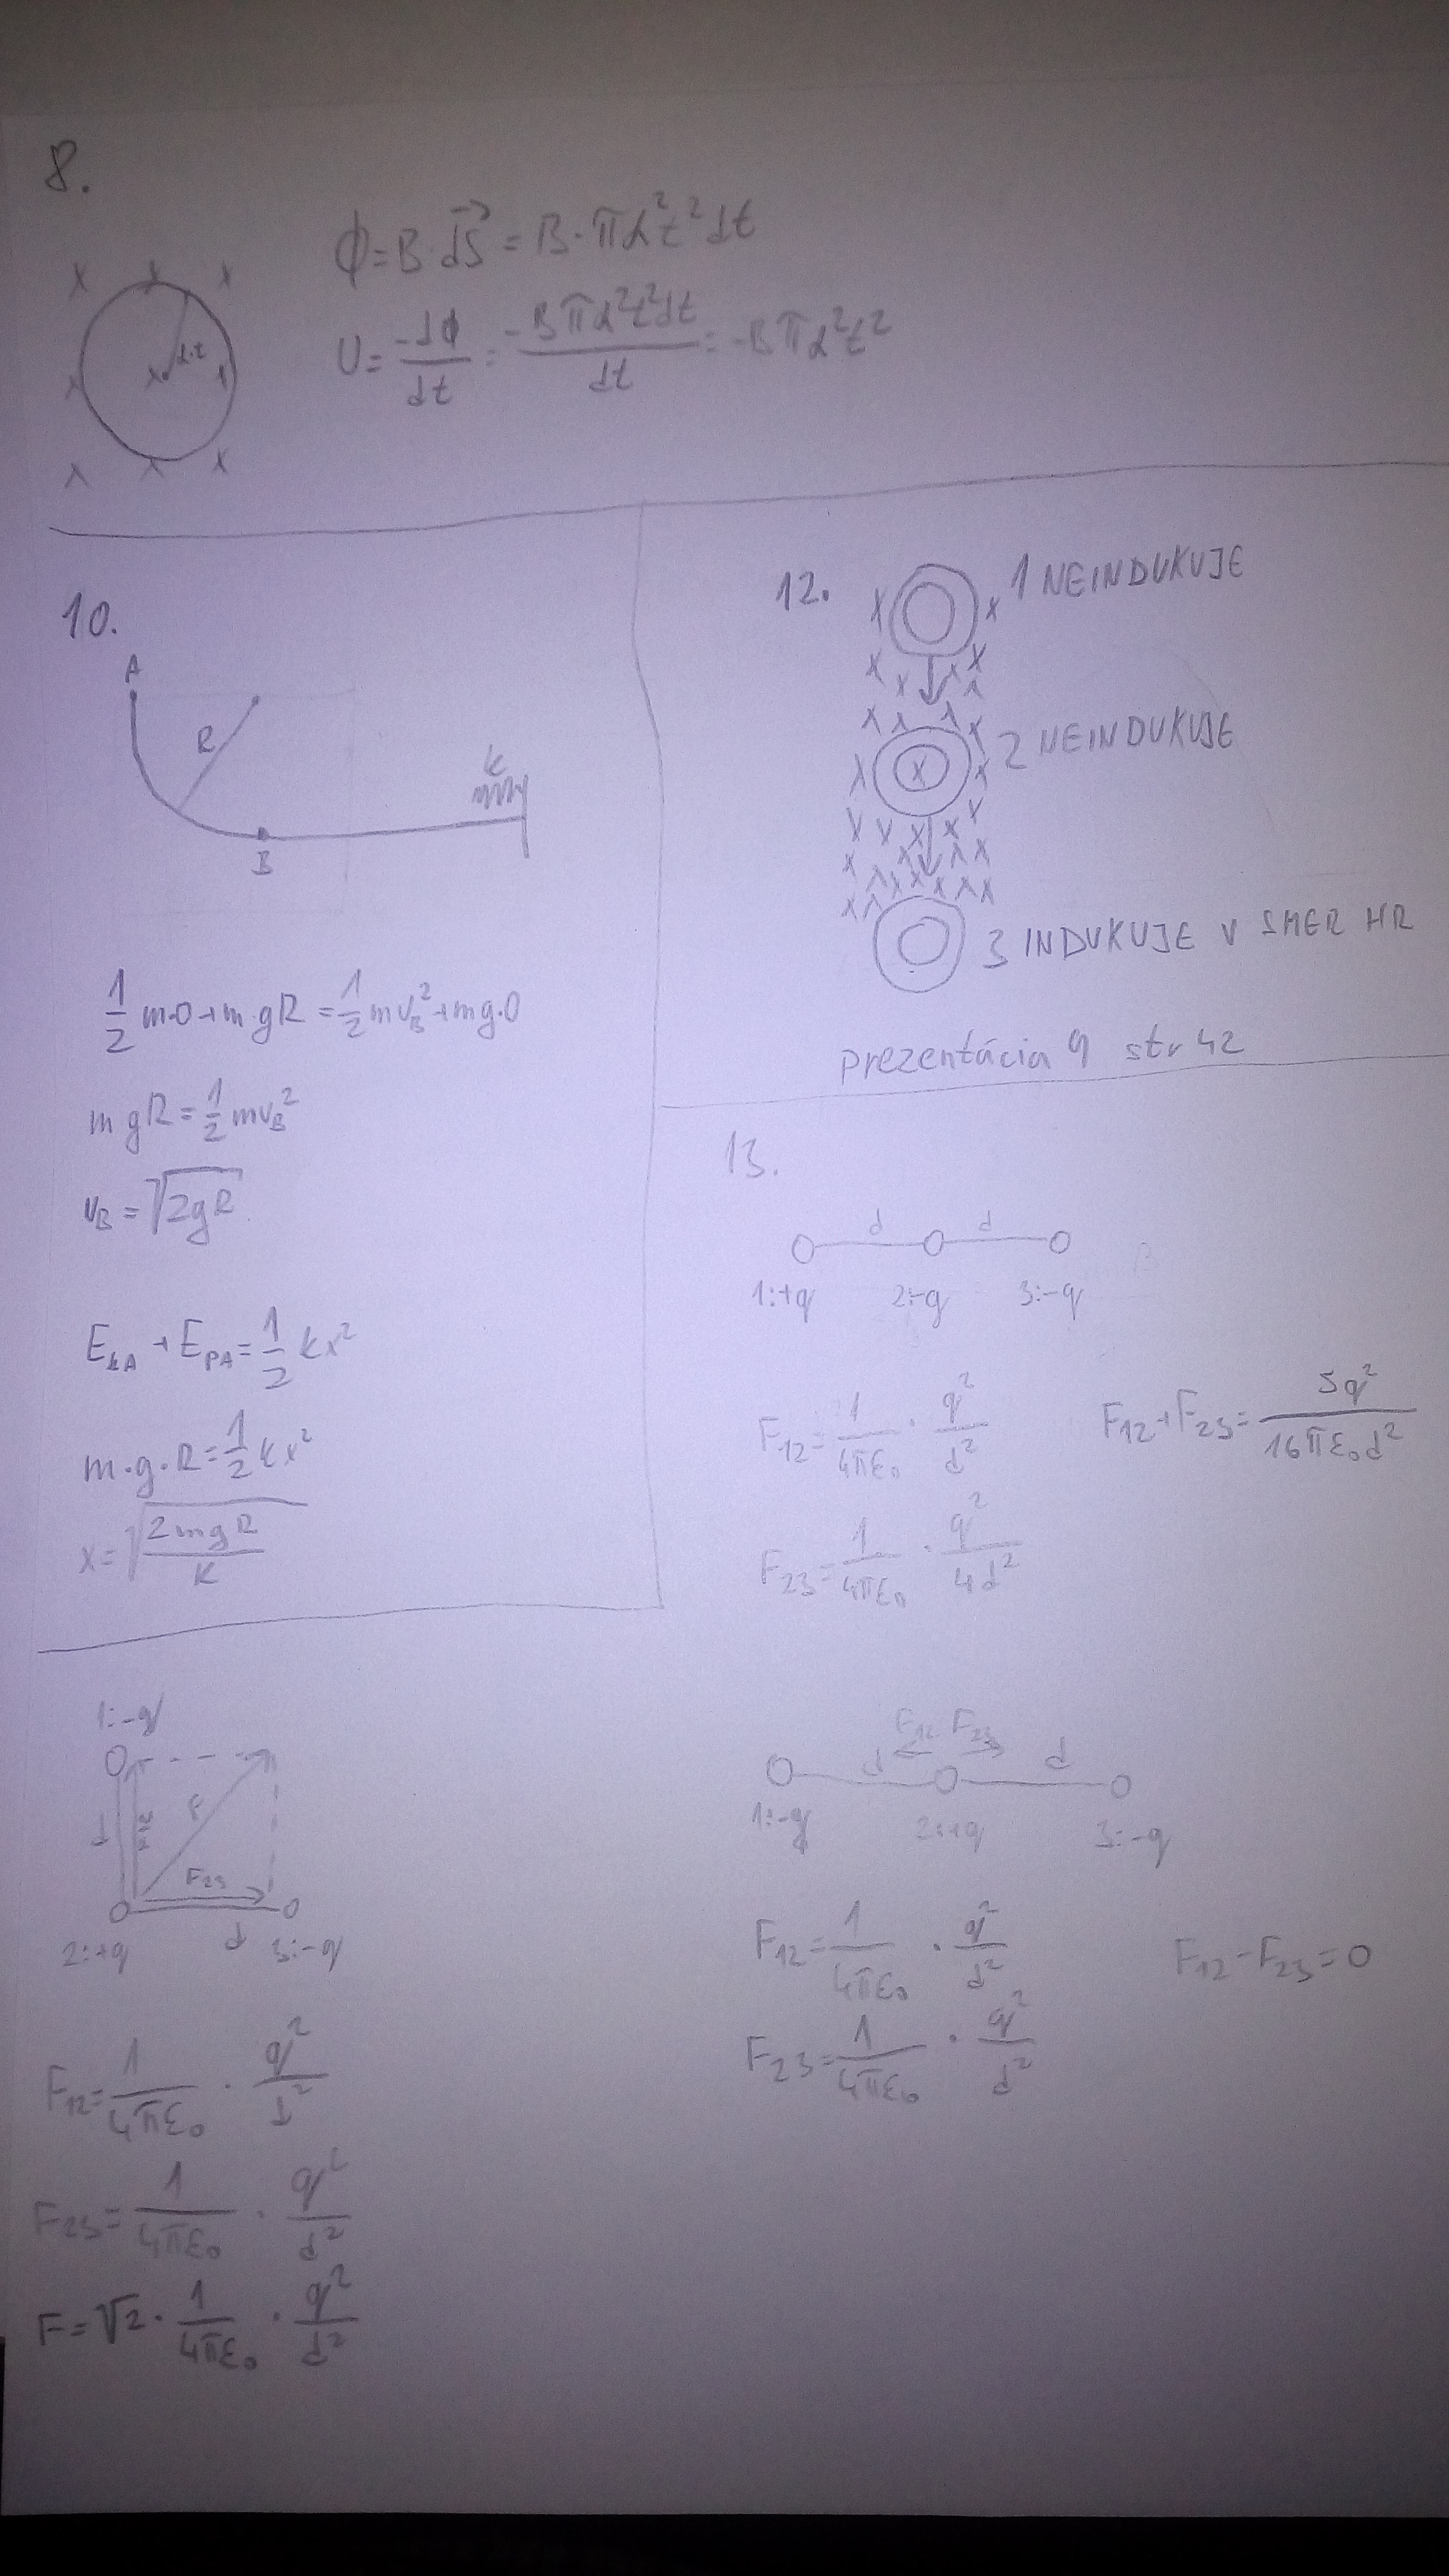 8.
ϕ = B·dS⃗ = B·πα²t²dt
α·t
U = -dϕ/dt = -Bπα²t²dt/dt = -Bπα²t²
10.
A
R
k
B
1/2 m·0 + m·gR = 1/2 mv_B² + mg·0
mgR = 1/2 mv_B²
v_B = √2gR
E_kA + E_PA = 1/2 kx²
m·g·R = 1/2 kx²
x = √(2mgR/k)
12.
1 NEINDUKUJE
2 NEINDUKUJE
3 INDUKUJE V SMER HR
prezentácia 9 str 42
13.
d d
1:+q 2:-q 3:-q
F₁₂ = 1/4πε₀ · q²/d²
F₁₂+F₂₃ = 5q²/16πε₀d²
F₂₃ = 1/4πε₀ · q²/4d²
1:-q
d F₁₂ F
F₂₃
2:+q d 3:-q
F₁₂ = 1/4πε₀ · q²/d²
F₂₃ = 1/4πε₀ · q²/d²
F = √2 · 1/4πε₀ · q²/d²
F₁₂ F₂₃
d d
1:-q 2:+q 3:-q
F₁₂ = 1/4πε₀ · q²/d²
F₁₂-F₂₃ = 0
F₂₃ = 1/4πε₀ · q²/d²